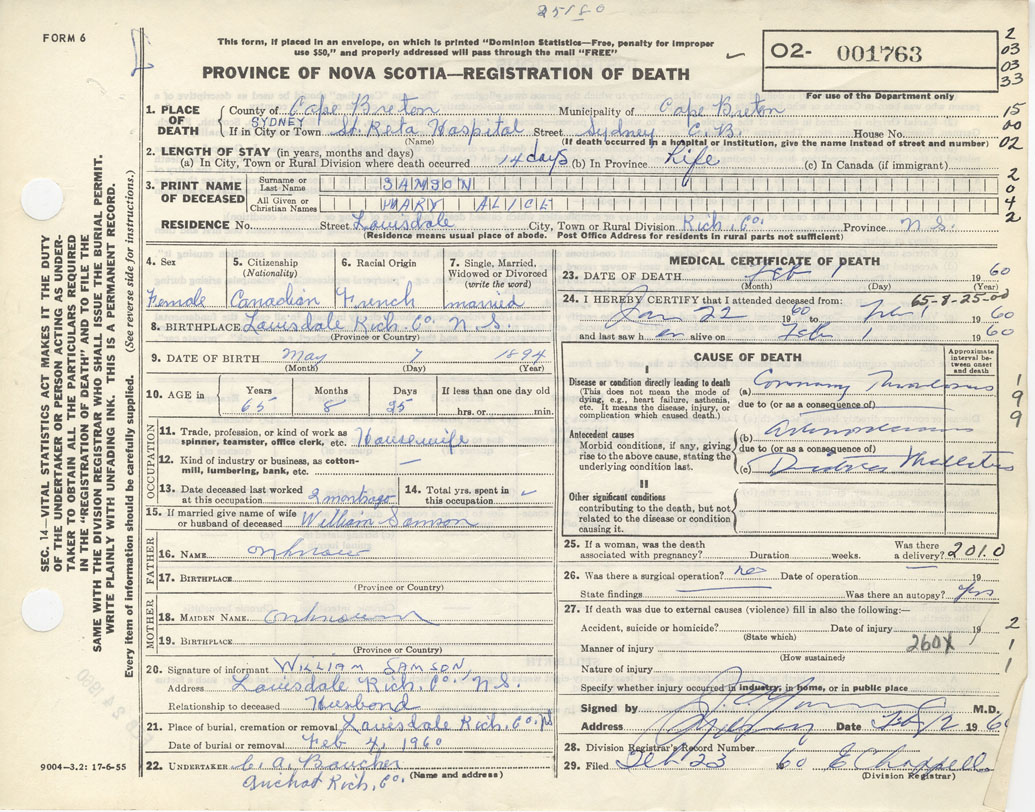 25180
FORM 6
This form, if placed in an envelope, on which is printed "Dominion Statistics—Free, penalty for improper
use $50," and properly addressed will pass through the mail "FREE"
PROVINCE OF NOVA SCOTIA—REGISTRATION OF DEATH
O2- 001763
For use of the Department only
2
03
03
33
15
00
02
2
0
4
2
1. PLACE OF DEATH
County of Cape Breton Municipality of Cape Breton
SYDNEY
If in City or Town St. Reta Hospital Street Sydney C.B. House No.
(Name) (If death occurred in a hospital or institution, give the name instead of street and number)
2. LENGTH OF STAY (in years, months and days)
(a) In City, Town or Rural Division where death occurred 14 days (b) In Province Life (c) In Canada (if immigrant)
3. PRINT NAME OF DECEASED
Surname or Last Name SAMSON
All Given or Christian Names MARY ALICE
RESIDENCE No. Street Louisdale City, Town or Rural Division Rich. Co. Province N.S.
(Residence means usual place of abode. Post Office Address for residents in rural parts not sufficient)
SEC. 14—VITAL STATISTICS ACT MAKES IT THE DUTY
OF THE UNDERTAKER OR PERSON ACTING AS UNDER-
TAKER TO OBTAIN ALL THE PARTICULARS REQUIRED
IN THE "REGISTRATION OF DEATH" AND TO FILE THE
SAME WITH THE DIVISION REGISTRAR WHO SHALL ISSUE THE BURIAL PERMIT.
WRITE PLAINLY WITH UNFADING INK. THIS IS A PERMANENT RECORD.
Every item of information should be carefully supplied. (See reverse side for instructions.)
4. Sex
Female
5. Citizenship
(Nationality)
Canadian
6. Racial Origin
French
7. Single, Married,
Widowed or Divorced
(write the word)
married
8. BIRTHPLACE Louisdale Rich. Co. N.S.
(Province or Country)
9. DATE OF BIRTH May 7 1894
(Month) (Day) (Year)
10. AGE in
Years Months Days If less than one day old
65 8 25 hrs. or min.
OCCUPATION
11. Trade, profession, or kind of work as
spinner, teamster, office clerk, etc. Housewife
12. Kind of industry or business, as cotton-
mill, lumbering, bank, etc. —
13. Date deceased last worked
at this occupation 2 months ago
14. Total yrs. spent in
this occupation
15. If married give name of wife
or husband of deceased William Samson
FATHER
16. NAME unknown
17. BIRTHPLACE
(Province or Country)
MOTHER
18. MAIDEN NAME unknown
19. BIRTHPLACE
(Province or Country)
20. Signature of informant WILLIAM SAMSON
Address Louisdale Rich. Co. N.S.
Relationship to deceased Husbond
21. Place of burial, cremation or removal Louisdale Rich. Co.
Date of burial or removal Feb 4, 1960
22. UNDERTAKER C. A. Boucher
(Name and address)
Arichat Rich, Co.
9004—3.2: 17-6-55
MEDICAL CERTIFICATE OF DEATH
23. DATE OF DEATH Feb 1 1960
(Month) (Day) (Year)
24. I HEREBY CERTIFY that I attended deceased from: 65-8-25-00
Jan 22 1960 to Feb 1 1960
and last saw h er alive on Feb 1 1960
CAUSE OF DEATH
Approximate
interval be-
tween onset
and death
I
Disease or condition directly leading to death
(This does not mean the mode of
dying, e.g., heart failure, asthenia,
etc. It means the disease, injury, or
complication which caused death.)
(a) Coronary Thrombosis
due to (or as a consequence of)
Antecedent causes
Morbid conditions, if any, giving
rise to the above cause, stating the
underlying condition last.
(b) Arteriosclerosis
due to (or as a consequence of)
(c) Diabetes Mellitus
II
Other significant conditions
contributing to the death, but not
related to the disease or condition
causing it.
1
9
9
25. If a woman, was the death
associated with pregnancy? Duration weeks. Was there
a delivery? 2010
26. Was there a surgical operation? no Date of operation 19
State findings Was there an autopsy? yes
27. If death was due to external causes (violence) fill in also the following:—
Accident, suicide or homicide? Date of injury 19
(State which)
Manner of injury 260X
(How sustained)
Nature of injury
Specify whether injury occurred in industry, in home, or in public place
2
1
1
Signed by M.D.
Address Sydney Date Feb 12 1960
28. Division Registrar's Record Number
29. Filed Feb 23 1960 E Chappell
(Division Registrar)